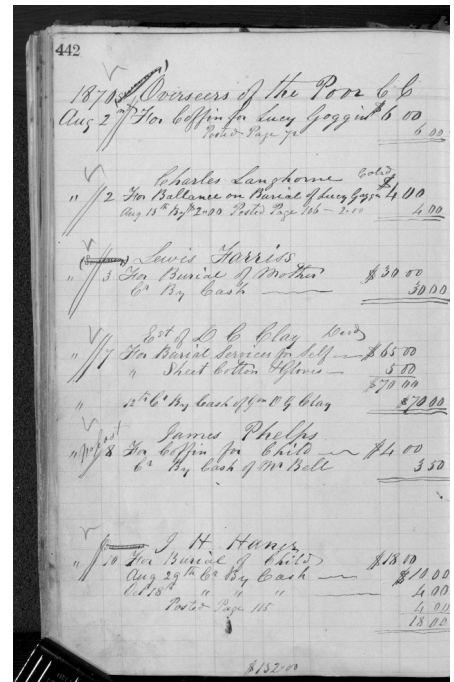 442
1870 Overseers of the Poor C C
Aug 2 For Coffin for Lucy Goggin $6 00
Posted Page 72 6 00
Charles Langhorne Cold
" 2 For Ballance on Burial of Lucy Goggin $4.00
Aug 15th By $2.00 Posted Page 106 - 2.00 4.00
Lewis Farriss
" 3 For Burial of Mother $30 00
Cr By Cash 30.00
Est of D. C. Clay Decd
" 7 For Burial Services for Self $65 00
" Sheet Cotton & Gloves 5 00
$70 00
" 12th Cr By Cash of O G Clay $70 00
James Phelps
" 8 For Coffin for Child $4 00
Cr By Cash of Mr Bell 3 50
J H Haner
" 10 For Burial of Child $18 00
Aug 29th Cr By Cash $10 00
Oct 18th " " " 4 00
Posted Page 115 4 00
18 00
$132.00